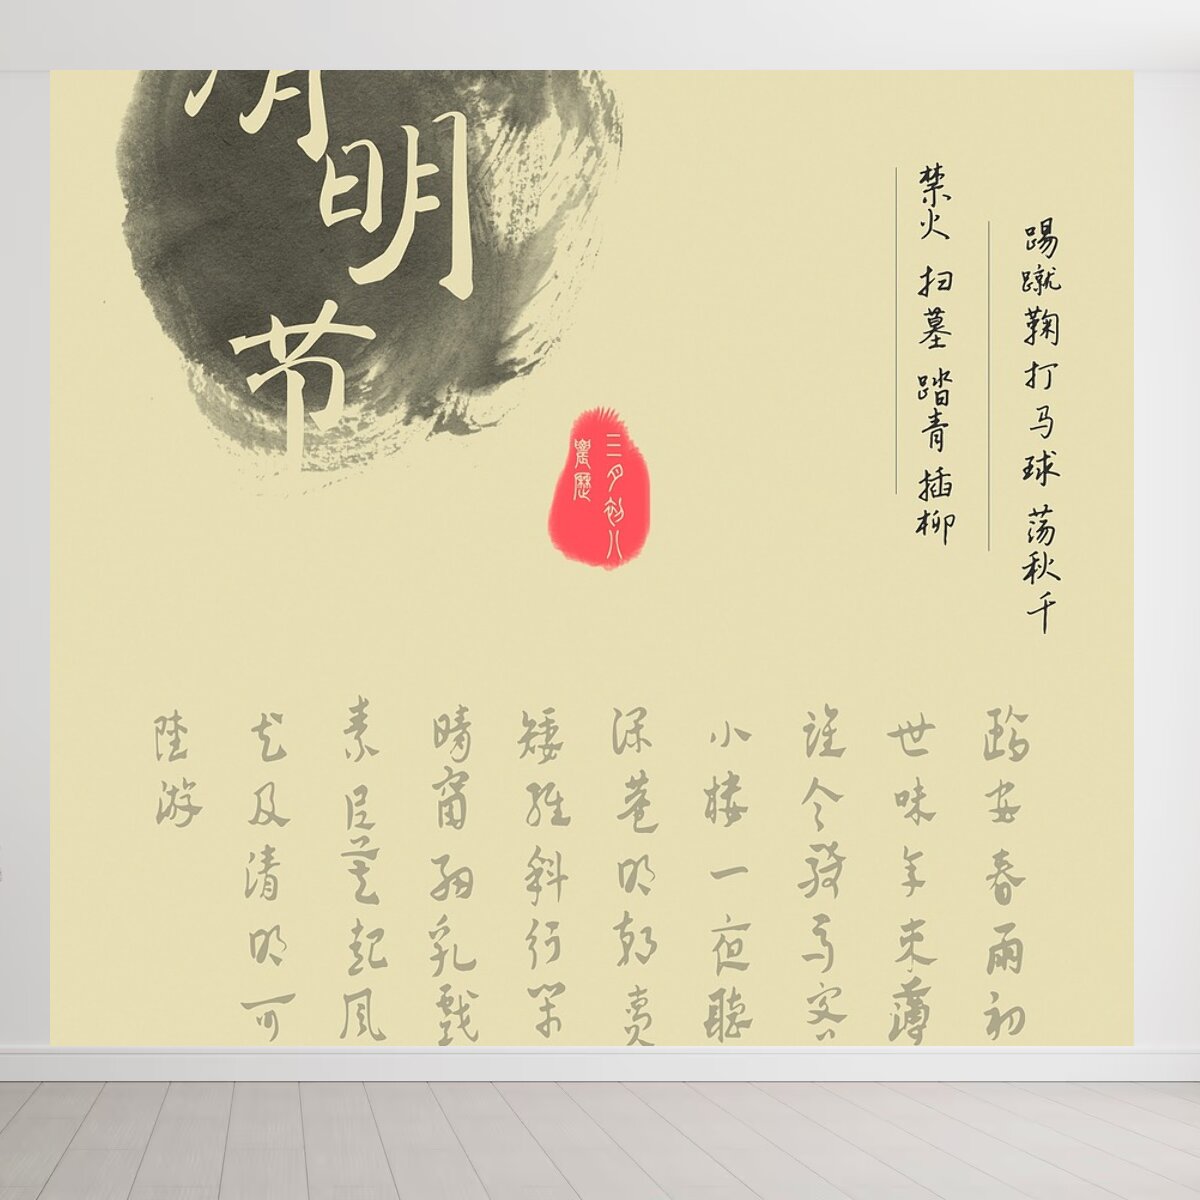 清明节
踢蹴鞠打马球荡秋千
禁火 扫墓 踏青 插柳
三月初八
農歷
臨安春雨初
世味年来薄
誰令騎马客
小楼一夜聽
深巷明朝賣
矮紙斜行闲
晴窗細乳戲
素衣莫起風
犹及清明可
陸游